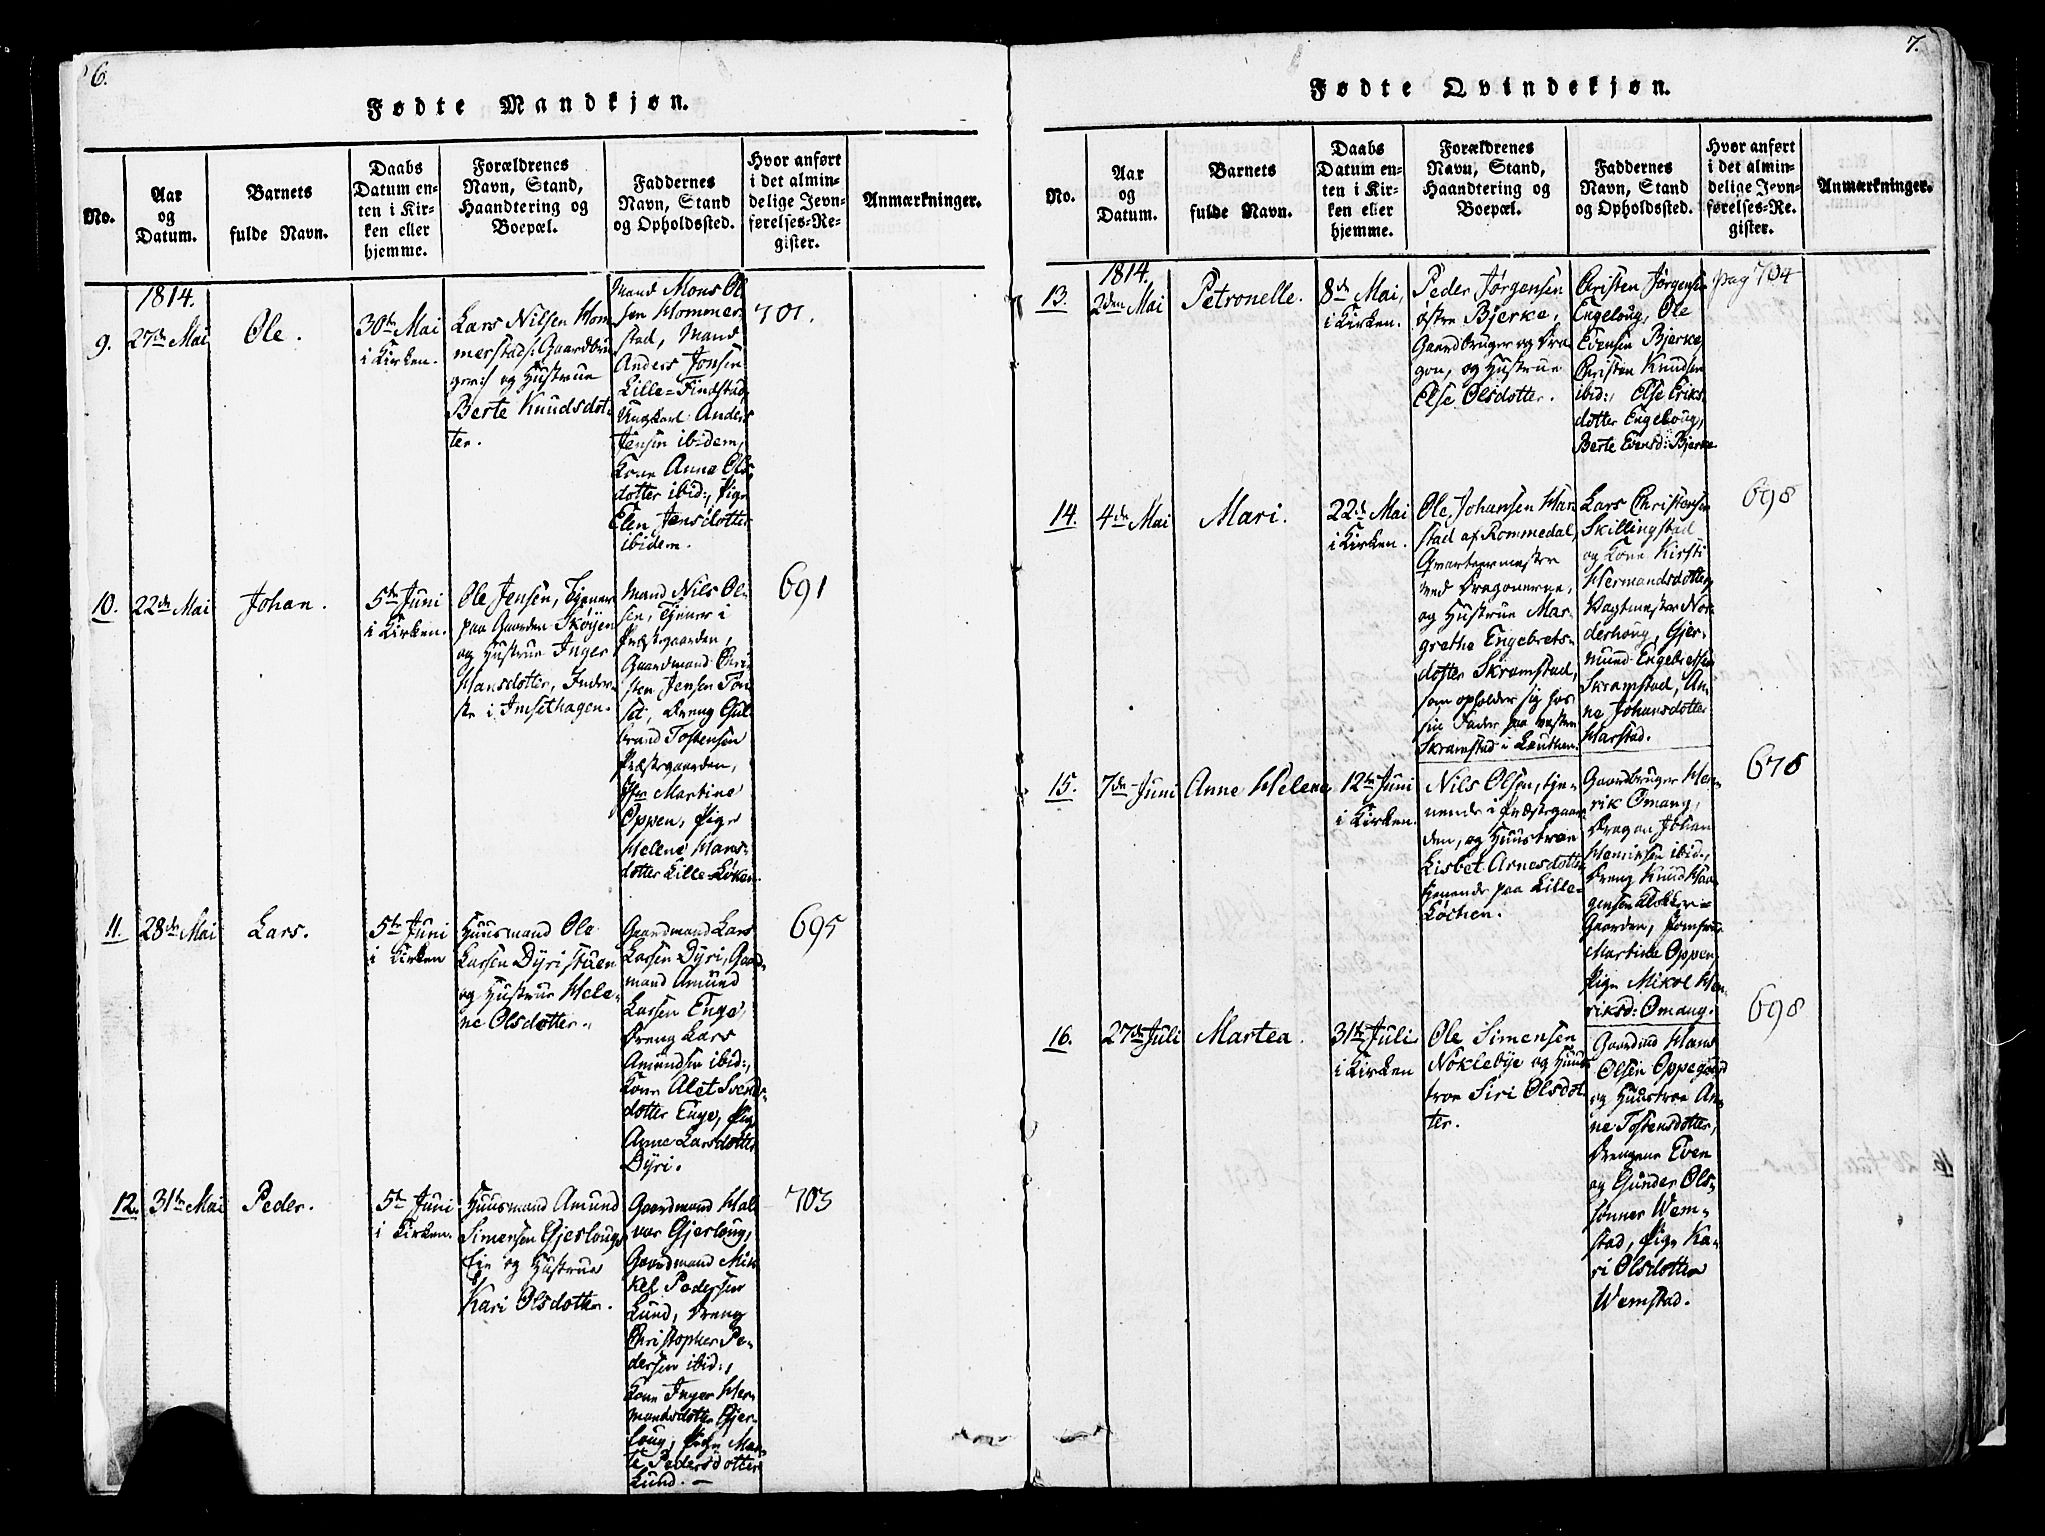 6.
Fødte Mandkjøn.
No.
Aar
og
Datum.
Barnets
fulde Navn.
Daabs
Datum en-
ten i Kir-
ken eller
hjemme.
Forældrenes
Navn, Stand,
Haandtering og
Boepæl.
Faddernes
Navn, Stand
og Opholdssted.
Hvor anført
i det almin-
delige Jevn-
førelses-Re-
gister.
Anmærkninger.
1814.
9.
27de Mai
Ole.
30te Mai
i Kirken.
Lars Nilsen Hom-
merstad, Gaardbru-
ger og Hustrue
Berte Knudsdot-
ter.
Mand Mons Ol-
sen Hommer-
stad, Mand
Anders Jonsen
Lille-Findstad,
Ungkarl Anders
Jensen ibidem,
Kone Anne Ols-
dotter ibid:, Pige
Elen Jensdotter
ibidem.
701.
10.
22de Mai
Johan.
5te Juni
i Kirken.
Ole Jensen, Tjener
paa Gaarden Skøyen
og Hustrue Inger
Hansdotter, Inder-
ste i Imsethagen.
Mand Nils Ol-
sen, Tjener i
Præstegaarden,
Gaardmand Chri-
sten Jensen Tøn-
set, Dreng Gul-
brand Tostensen
Præstegaarden,
Jfr Martine
Oppen, Pige
Helene Hans-
dotter Lille-Løken.
691
11.
28de Mai
Lars.
5te Juni
i Kirken
Huusmand Ole
Larsen Dyristuen
og Hustrue Hele-
ne Olsdotter.
Gaardmand Lars
Larsen Dyri, Gaard-
mand Amund
Larsen Enge,
Dreng Lars
Amundsen ibid:,
Kone Alet Svends-
dotter Enge, Pige
Anne Larsdotter
Dyri.
695
12.
31te Mai
Peder.
5te Juni
i Kirken.
Huusmand Amund
Simensen Gjerlougs
Eie og Hustrue
Kari Olsdotter.
Gaardmand Hal-
vor Gjerloug,
Gaardmand Mik-
kel Pedersen
Lund, Dreng
Christopher Pe-
dersen ibid:,
Kone Inger Her-
mandsdotter Gjer-
loug, Pige Mar-
te Pedersdotter
Lund.
703
7.
Fødte Qvindekjøn.
No.
Aar
og
Datum.
Barnets
fulde Navn.
Daabs
Datum en-
ten i Kir-
ken eller
hjemme.
Forældrenes
Navn, Stand,
Haandtering og
Boepæl.
Faddernes
Navn, Stand
og Opholdssted.
Hvor anført
i det almin-
delige Jevn-
førelses-Re-
gister.
Anmærkninger.
1814.
13.
2den Mai
Petronelle.
8de Mai,
i Kirken.
Peder Jørgensen
østre Bjerke,
Gaardbruger og Dra-
gon, og Hustrue
Else Olsdotter.
Christen Jørgensen
Engeloug, Ole
Evensen Bjerke,
Christen Knudsen
ibid:, Else Eriks-
dotter Engeloug,
Berte Evensd: Bjerke
pag 704
14.
4de Mai
Mari.
22de Mai
i Kirken.
Ole Johansen Har-
stad af Rommedal,
Qvarteermester
ved Dragonerne,
og Hustrue Mar-
grethe Engebrets-
dotter Skramstad,
som opholder sig hos
sin Fader paa vestre
Skramstad i Leuthen.
Lars Christensen
Skillingstad
og Kone Kirsti
Hermandsdotter,
Vagtmester Nor-
derhoug, Gjer-
mund Engebretsen
Skramstad, An-
ne Johansdotter
Harstad.
698
15.
7de Juni
Anne Helene
12te Juni
i Kirken.
Nils Olsen, tje-
nende i Præstegaar-
den, og Huustroe
Lisbet Arnesdotter
tjenende paa Lille-
Løchen.
Gaardbruger Hen-
rik Omang,
Dragon Johan
Henriksen ibid:,
Dreng Knud Haa-
gensen Klokker-
Gaarden, Jomfrue
Martine Oppen,
Pige Mikol Hen-
riksd: Omang.
678
16.
27de Juli
Martea.
31te Juli
i Kirken
Ole Simensen
Nøklebye og Huus-
troe Siri Olsdot-
ter.
Gaardmd Hans
Olsen Oppegaard
og Huustroe An-
ne Tostensdotter,
Drengene Even
og Gunder Ols-
sønner Wem-
stad, Pige Ka-
ri Olsdotter
Wemstad.
698